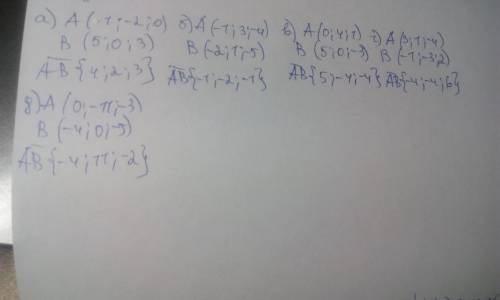 а) A (1; -2; 0) б) A (-1; 3; -4) в) A (0; 4; 1) г) A (3; 1; -4)
B (5; 0; 3) B (-2; 1; -5) B (5; 0; -3) B (-1; -3; 2)
AB {4; 2; 3} AB {-1; -2; -1} AB {5; -4; -4} AB {-4; -4; 6}
д) A (0; -11; -3)
B (-4; 0; -5)
AB {-4; 11; -2}